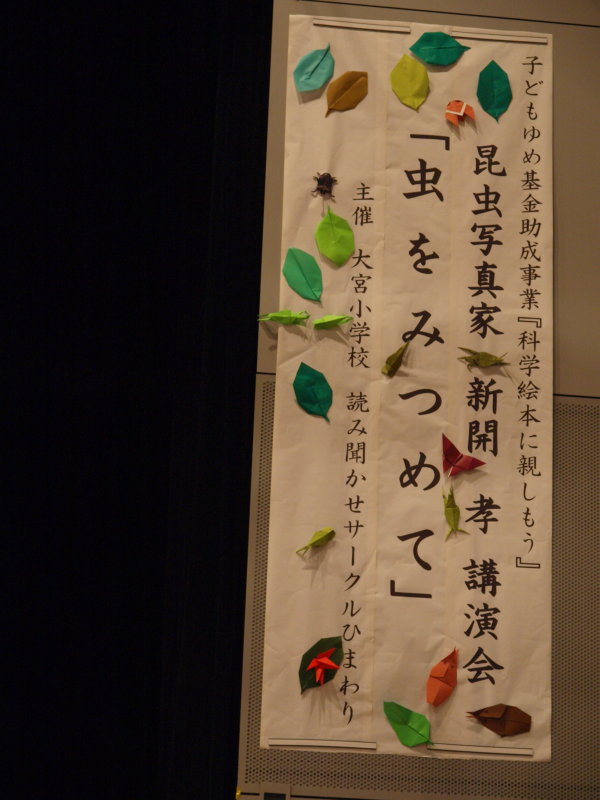 子どもゆめ基金助成事業『科学絵本に親しもう』
昆虫写真家 新開 孝 講演会
「虫をみつめて」
主催 大宮小学校 読み聞かせサークルひまわり